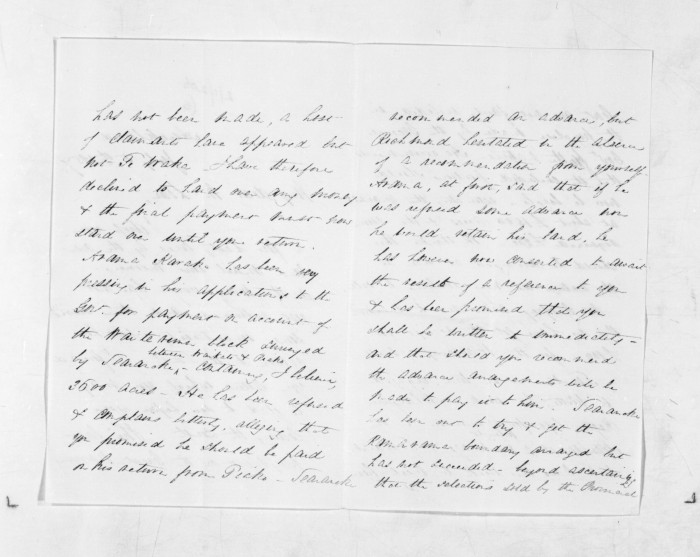 has not been made, a host
of claimants have appeared but
not Te Waka I have therefore
declined to hand over any money
& the final payment must now
stand over until you return.
Arama Karaka has been very
pressing in his applications to the
Govt. for payment on account of
the block surveyed
between &
by containing, I believe,
3600 acres - He has been refused
& complains bitterly, alleging that
you promised he should be paid
on his return from
recommended an advance, but
Richmond hesitated in the absence
of a recommendation from yourself.
Arama, at first, said that if he
was refused some advance now
he would retain his land, he
has however now consented to await
the result of a reference to you
& has been promised that you
shall be written to immediately -
and that should you recommend
the advance arrangements will be
made to pay it to him.
has been out to try & get the
boundary arranged but
has not succeeded - beyond ascertaining
that the selections sold by the Provincial